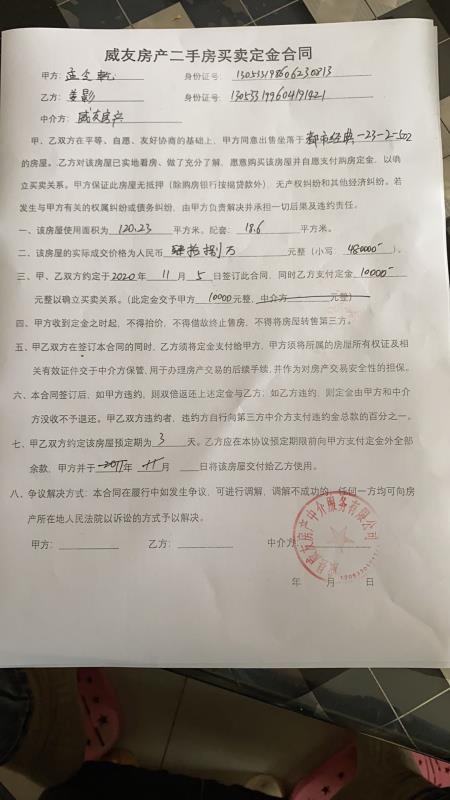 威友房产二手房买卖定金合同
甲方：孟令乾 身份证号：130533198606230813
乙方：姜影 身份证号：130533199604191421
中介方：威友房产
甲、乙双方在平等、自愿、友好协商的基础上，甲方同意出售坐落于都市经典-23-2-502
的房屋。乙方对该房屋已实地看房、做了充分了解，愿意购买该房屋并自愿支付购房定金，以确
立买卖关系。甲方保证此房屋无抵押（除购房银行按揭贷款外），无产权纠纷和其他经济纠纷。若
发生与甲方有关的权属纠纷或债务纠纷，由甲方负责解决并承担一切后果及违约责任。
一、该房屋使用面积为 120.23 平方米。配套：18.6 平方米。
二、该房屋的实际成交价格为人民币 肆拾捌万 元整（小写：480000）。
三、甲、乙双方约定于2020年 11 月 5 日签订此合同，同时乙方支付定金 10000
元整以确立买卖关系。（此定金交予甲方 10000元整，中介方 元整）
四、甲方收到定金之时起，不得抬价，不得借故终止售房，不得将房屋转售第三方。
五、甲乙双方在签订本合同的同时，乙方须将定金支付给甲方，甲方须将所属的房屋所有权证及相
关有效证件交于中介方保管，用于办理房产交易的后续手续，并作为对房产交易安全性的担保。
六、本合同签订后，如甲方违约，则双倍返还上述定金与乙方；如乙方违约，则定金由甲方和中介
方没收不予退还。甲乙双方违约者，违约方自行向第三方中介方支付违约金总款的百分之一。
七、甲乙双方约定该房屋预定期为 3 天。乙方应在本协议预定期限前向甲方支付定金外全部
余款，甲方并于 年 11月 日将该房屋交付给乙方使用。
八、争议解决方式：本合同在履行中如发生争议，可进行调解，调解不成功的，任何一方均可向房
产所在地人民法院以诉讼的方式予以解决。
甲方： 乙方： 中介方：
威友房产中介服务有限公司
年 月 日